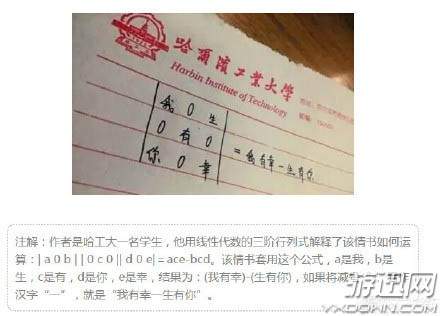 哈爾濱工業大學
Harbin Institute of Technology
我 0 生
0 有 0 = 我有幸一生有你
你 0 幸
注解：作者是哈工大一名学生，他用线性代数的三阶行列式解释了该情书如何运
算：| a 0 b | | 0 c 0 || d 0 e| = ace-bcd。该情书套用这个公式，a是我，b是
生，c是有，d是你，e是幸，结果为：(我有幸)-(生有你)，如果将减
汉字“一”，就是“我有幸一生有你”。
游迅网